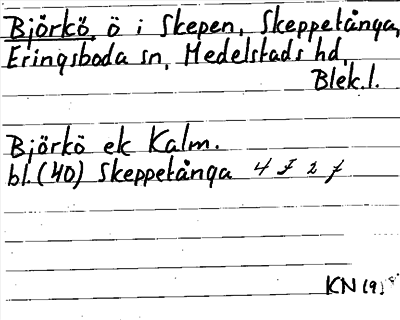 Björkö, ö i Skepen, Skeppetånga,
Eringsboda sn, Medelstads hd,
Blek.l.
Björkö ek Kalm.
bl.(40) Skeppetånga 4 J 2 f
KN (9)